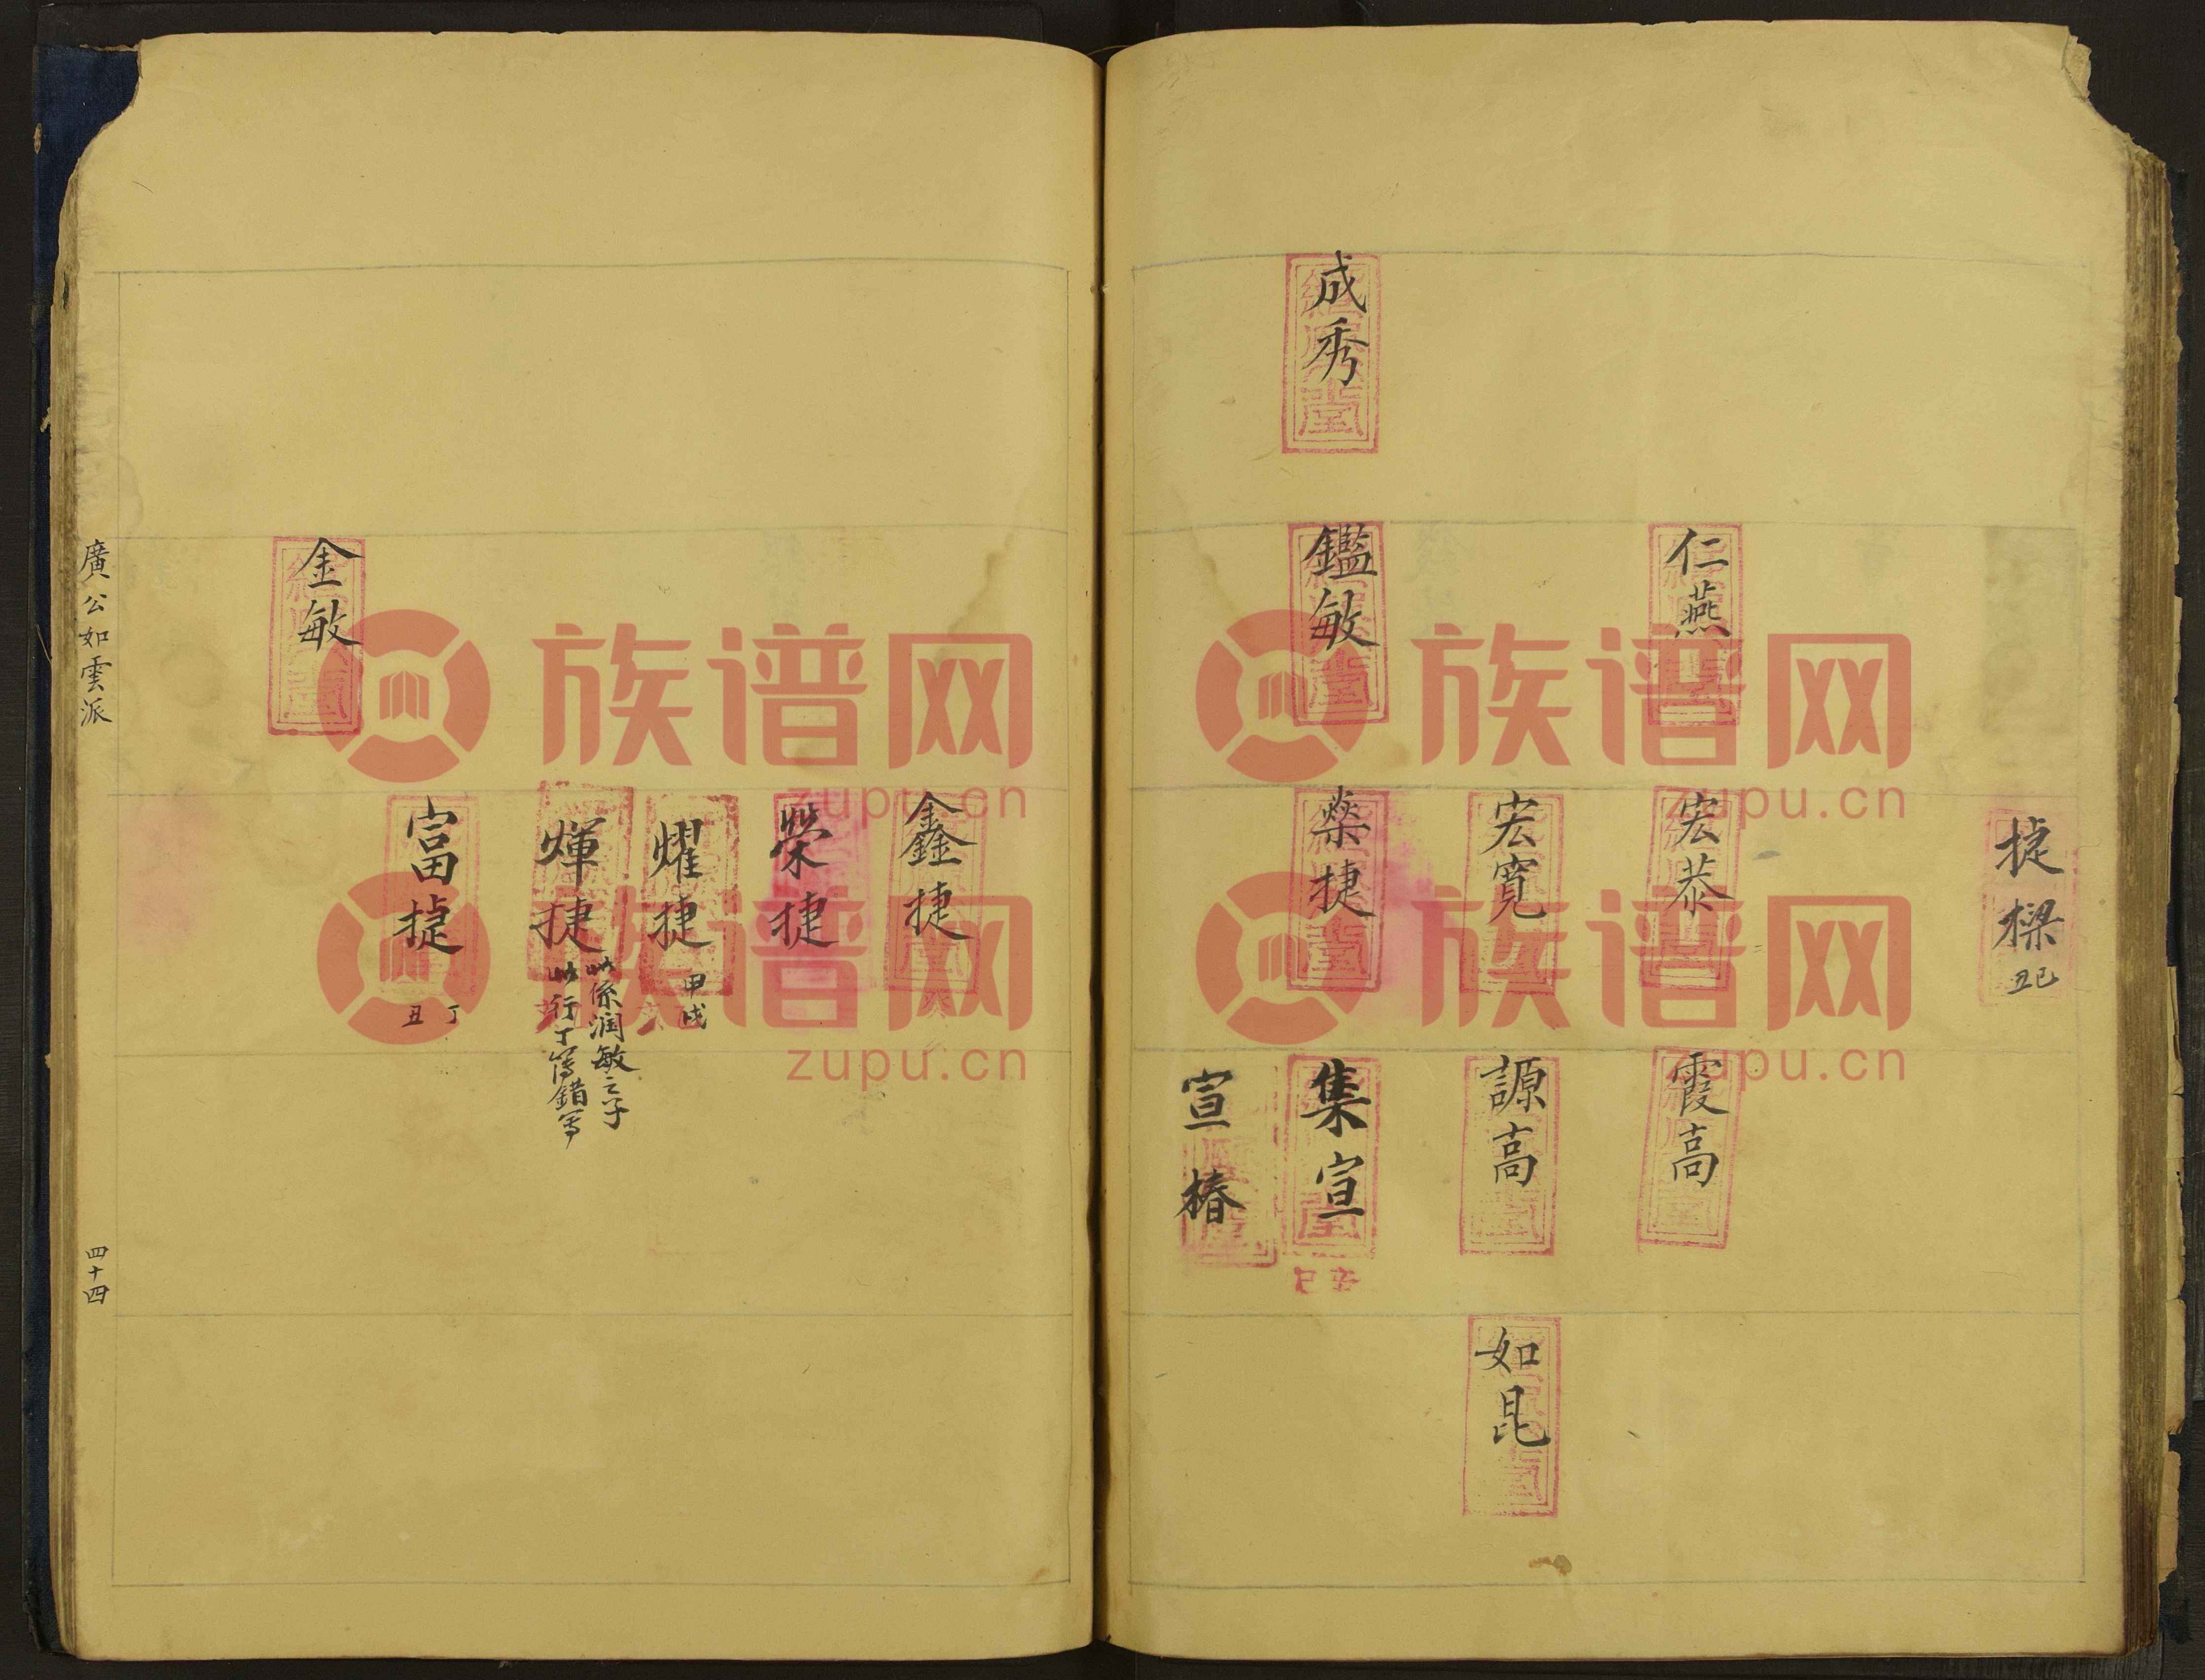 成秀
仁燕
鑑敏
捷樑
己丑
宏恭
宏寬
燊捷
霞高
謜高
集宣
辛巳
宣椿
如昆
金敏
鑫捷
榮捷
燿捷
甲戌
煇捷
此係潤敏之子
此行丁寫錯寫
富捷
丁丑
廣公如雲派
四十四
族谱网
zupu.cn
族谱网
zupu.cn
族谱网
zupu.cn
族谱网
zupu.cn